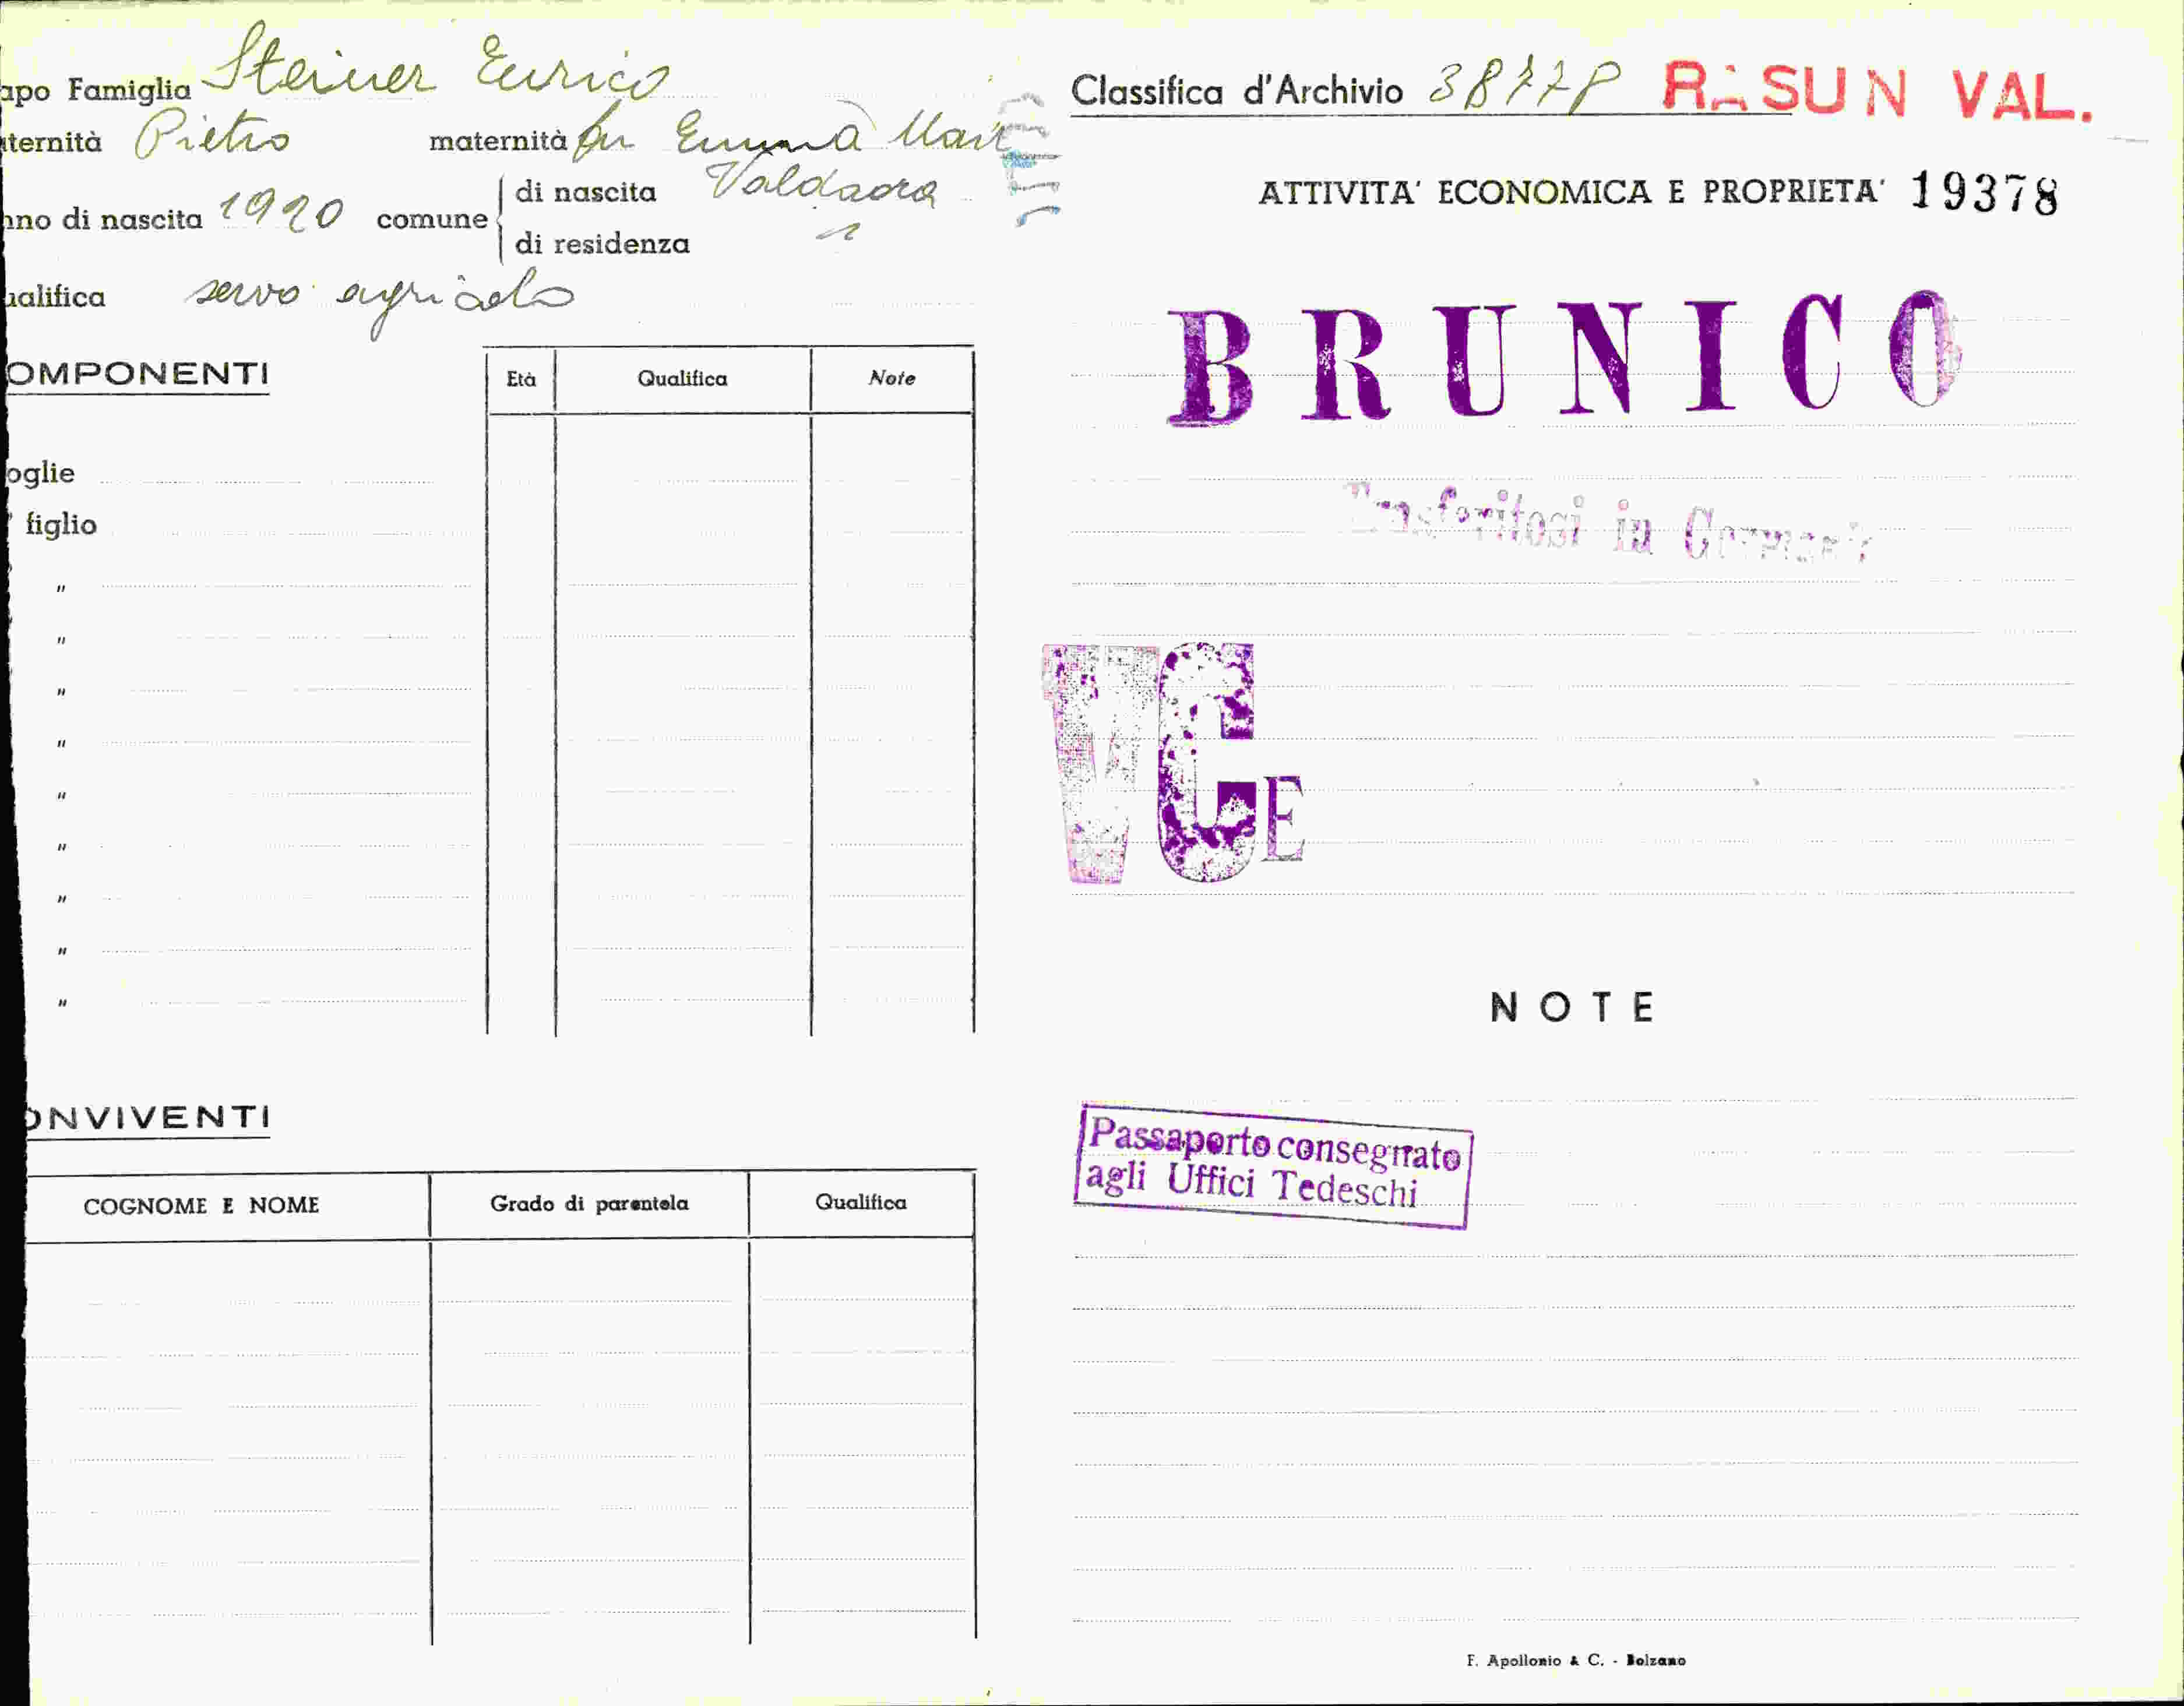 apo Famiglia Steiner Enrico
ternità Pietro maternità fu Emma Mair
nno di nascita 1920 comune di nascita Valdaora
di residenza "
ualifica servo agricolo
OMPONENTI
Età Qualifica Note
oglie
figlio
"
"
"
"
"
"
"
"
"
ONVIVENTI
COGNOME E NOME Grado di parentela Qualifica
Classifica d'Archivio RASUN VAL.
ATTIVITA' ECONOMICA E PROPRIETA' 19378
BRUNICO
Trasferitosi in Germania
VGE
NOTE
Passaporto consegnato
agli Uffici Tedeschi
F. Apollonio & C. - Bolzano